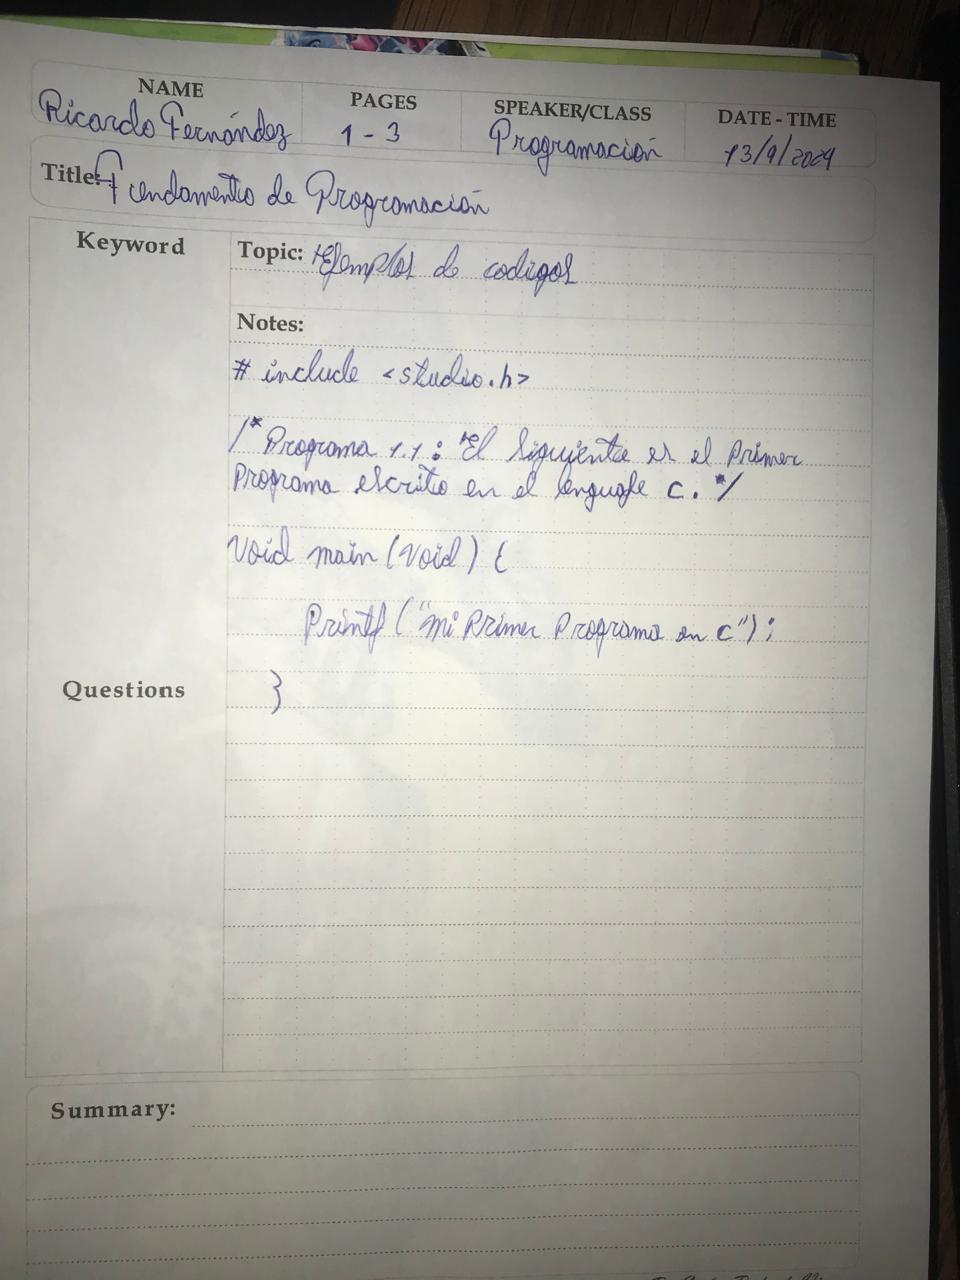 NAME PAGES SPEAKER/CLASS DATE - TIME
Ricardo Fernández 1 - 3 Programación 13/9/2024
Title: Fundamento de Programación
Keyword
Topic: Ejemplos de codigos
Notes:
# include <studio.h>
/* Programa 1.1: El siguiente es el Primer
Programa escrito en el lenguaje c. */
Void main (void) {
Printf ("mi Primer Programa en c");
}
Questions
Summary: